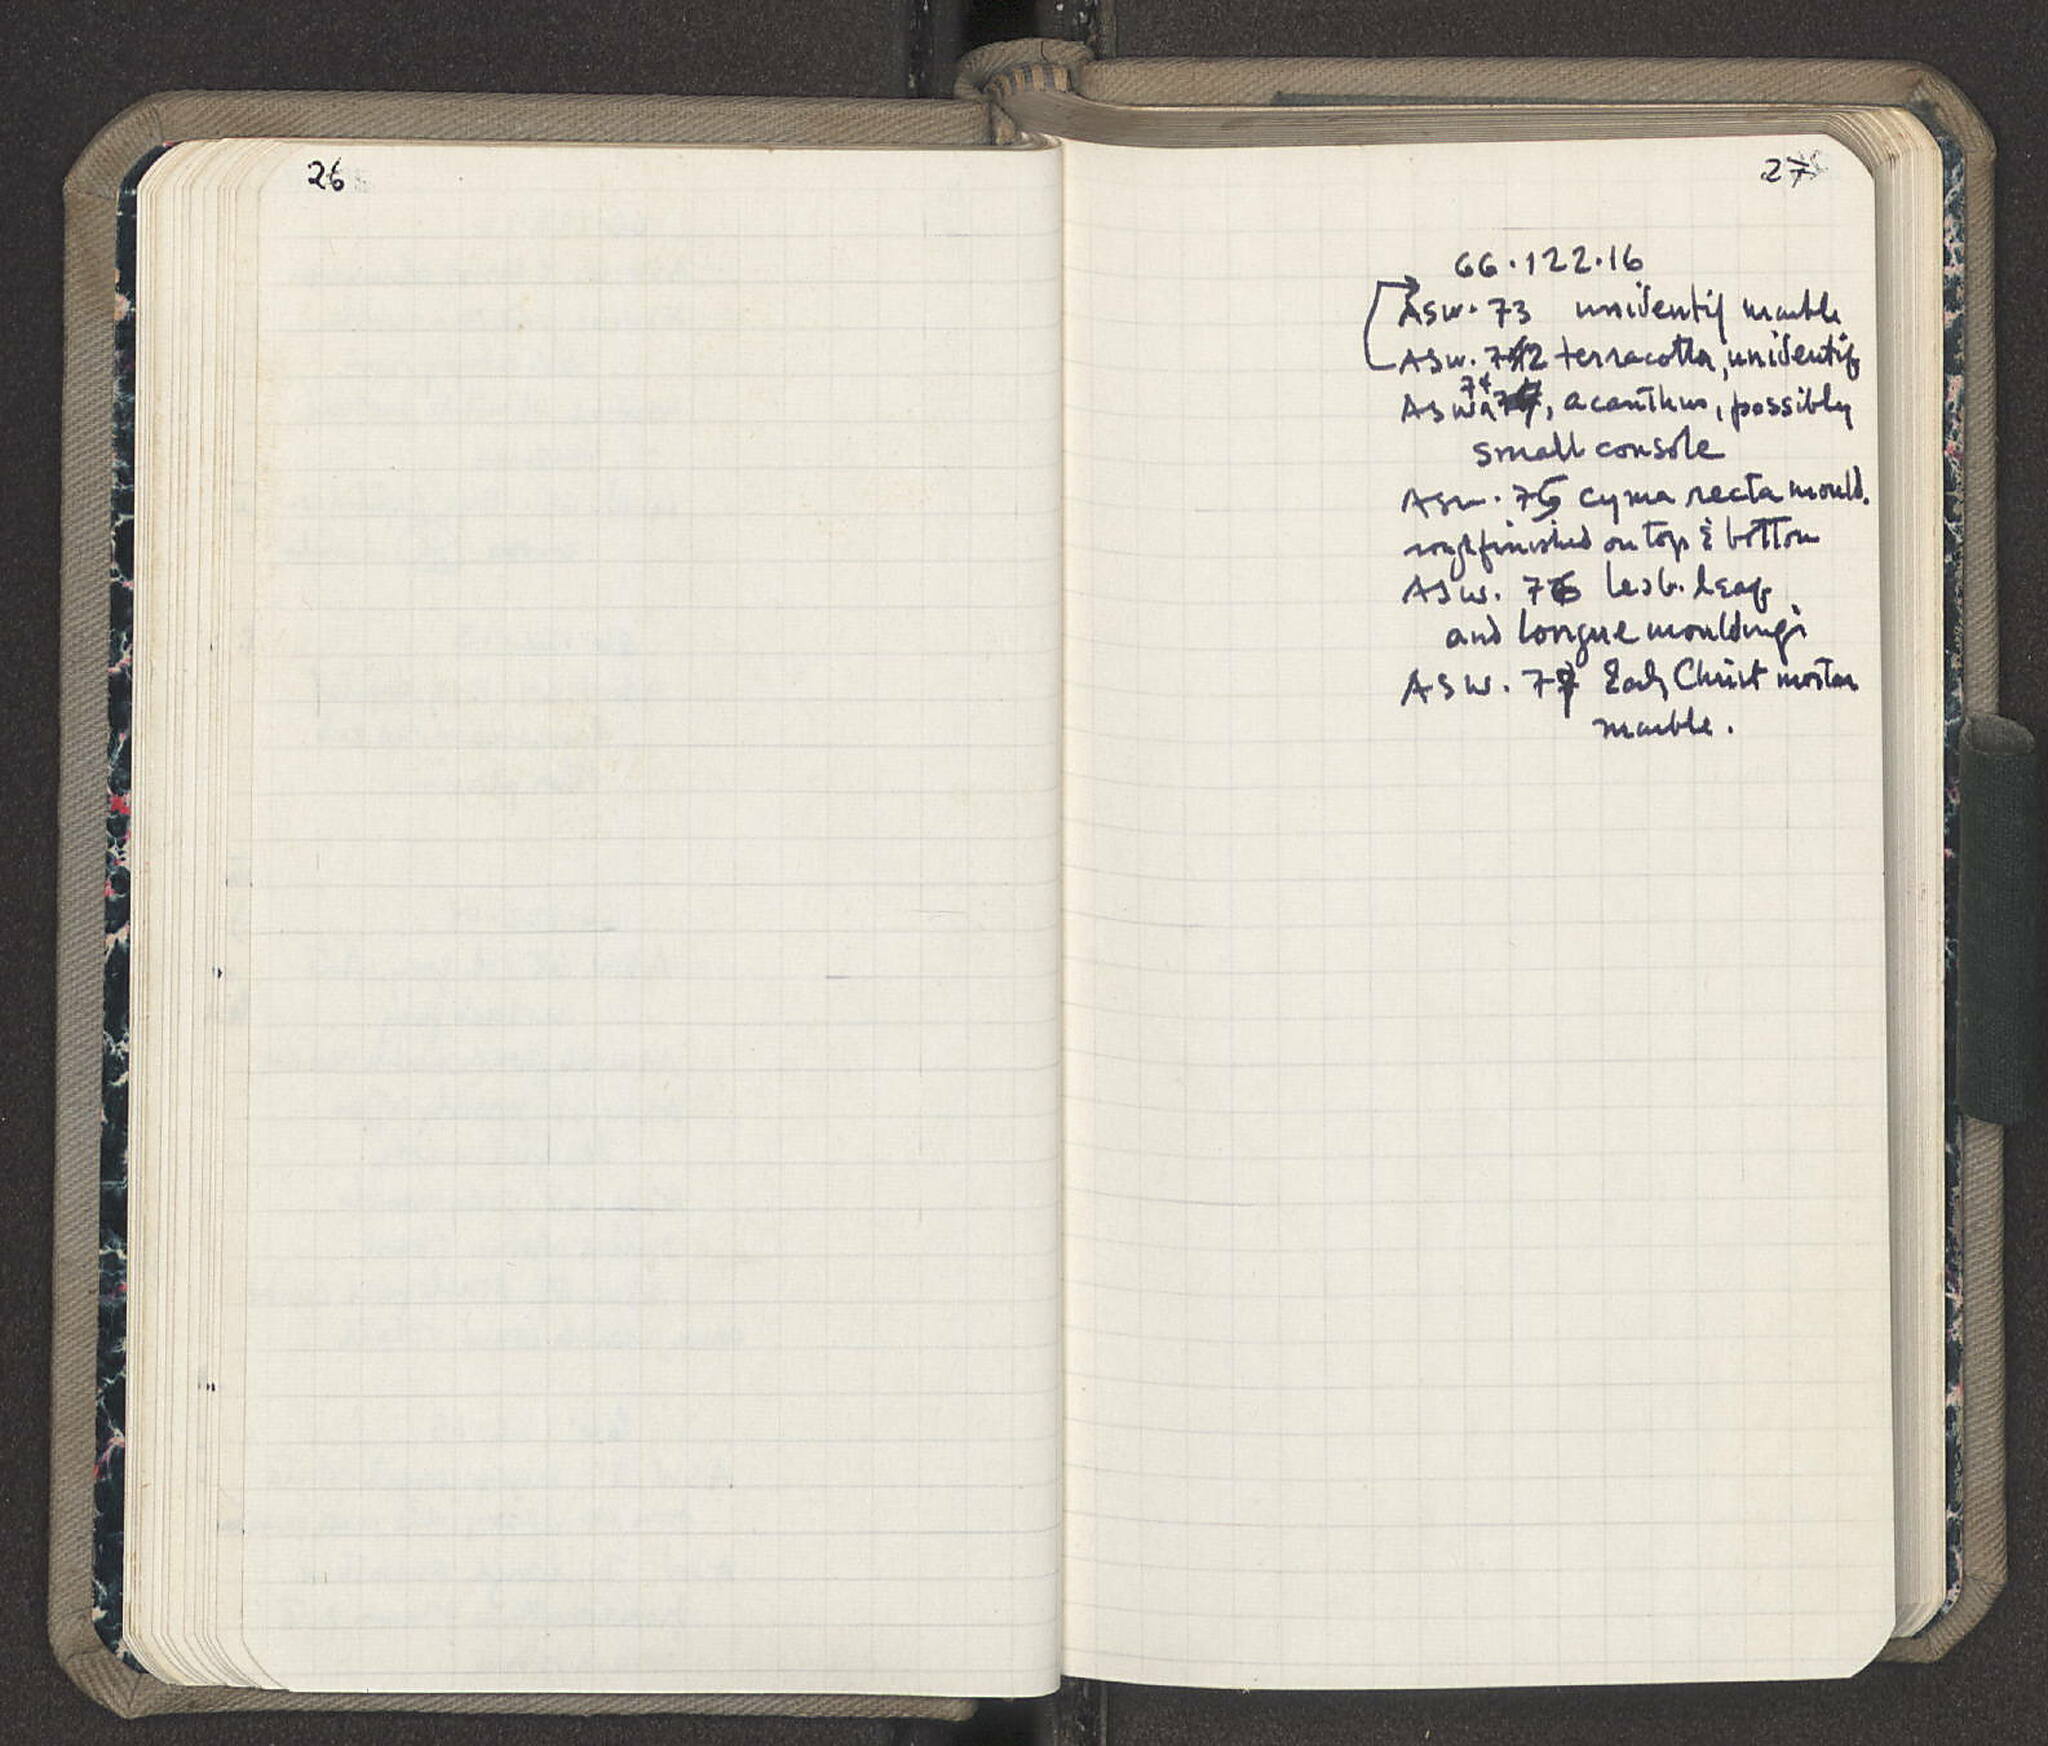 26
27
66.122.16
ASW. 73 unidentif marble
ASW. 72 terracotta, unidentif
ASW 74, acanthus, possibly
small console
ASW. 75 cyma recta mould.
roughfinished on top & bottom
ASW. 76 lesb. leaf
and tongue moulding
ASW. 77 Early Christ mortar
marble.